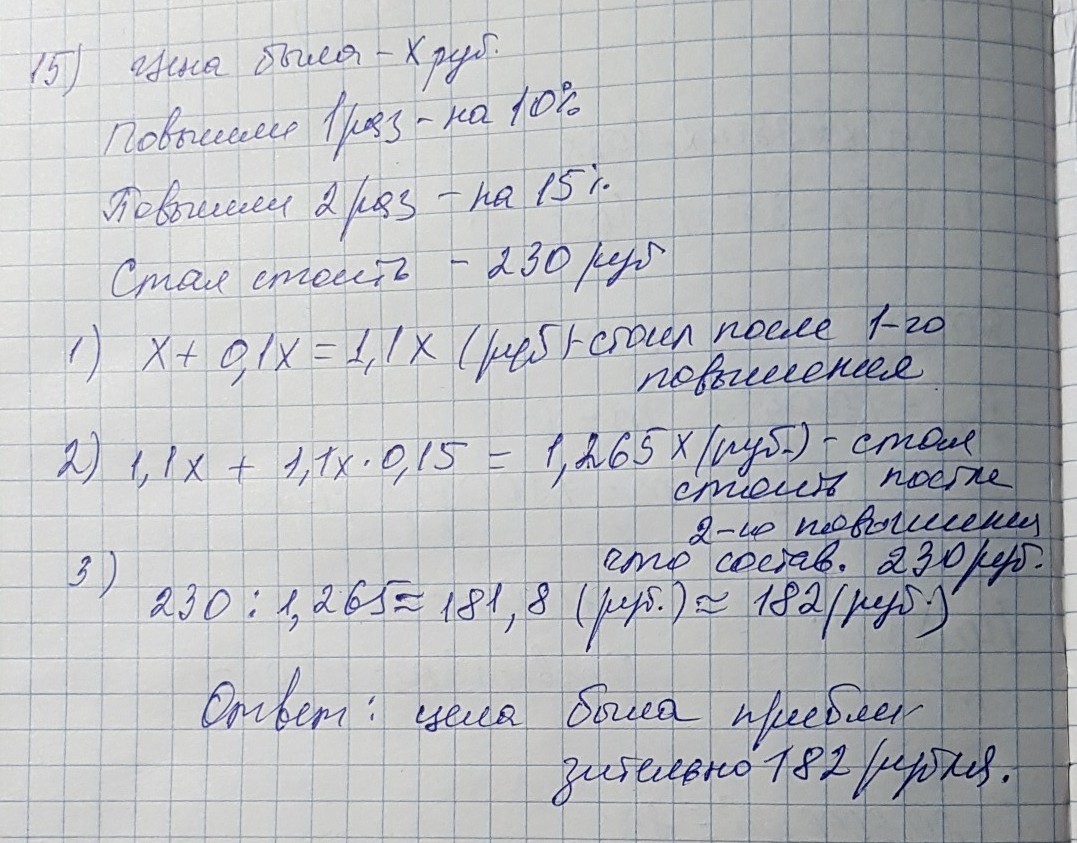 15) Цена была - х руб.
Повысили 1 раз - на 10%
Повысили 2 раз - на 15%
Стал стоить - 230 руб
1) х + 0,1х = 1,1х (руб) - стоил после 1-го
повышения
2) 1,1х + 1,1х·0,15 = 1,265х (руб.) - стал
стоить после
2-го повышения
что состав. 230 руб.
3)
230 : 1,265 ≈ 181,8 (руб.) ≈ 182 (руб.)
Ответ: цена была прибли
зительно 182 рубля.